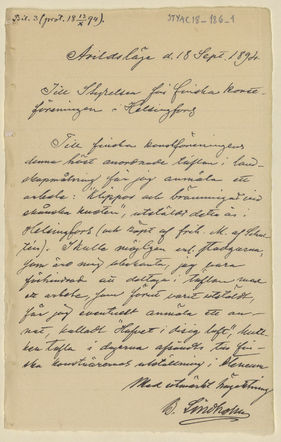 Bil. 3 (prot. 18 13/X 94).
STYAC18-186-1
Arildsläge d. 18 Sept. 1894.
Till Styrelsen för finska konst-
föreningen - Helsingfors
Till finska konstföreningens
denna höst anordnade täflan i land-
skapsmålning får jag anmäla ett
arbete: "Klippor och bränningar vid
skånska kusten", utstäldt detta år i
Helsingfors (och köpt af frih. M. af
Skulle möjligen enl. stadgarna,
som äro mig obekanta, jag vara
förhindrad att deltaga i täflan med
ett arbete, som förut varit utstäldt,
får jag eventuelt anmäla ett an-
nat, kalladt "Hafvet i disig luft", hvil-
ken tafla i dagarna afsändts till fin-
ska konstnärernas utställning i Ateneum
Med utmärkt högaktning
B. Lindholm